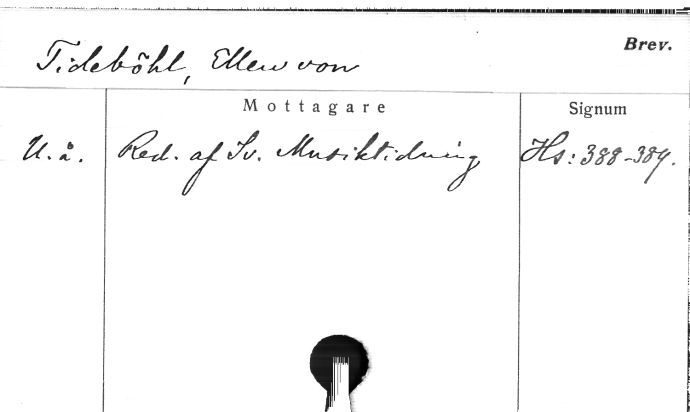 Brev.
Tideböhl, Ellen von
Mottagare Signum
U. å. Red. af Sv. Musiktidning Hs: 388-389.